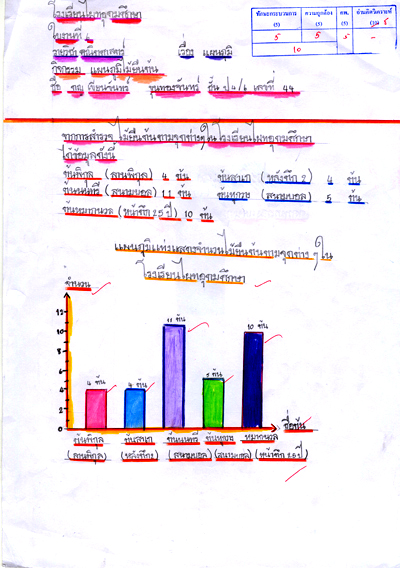 โรงเรียนไผทอุดมศึกษา
ใบงานที่
รายวิชา คณิตศาสตร์ เรื่อง แผนภูมิ
กิจกรรม แผนภูมิไม้ยืนต้น
ชื่อ ชั้น ป.4/6 เลขที่ 44
ทักษะกระบวนการ (5) ความถูกต้อง (5) คพ. (5)
5 5 5 -
10
จากการสำรวจ ไม้ยืนต้นตามจุดต่างๆในโรงเรียนไผทอุดมศึกษา
ได้ข้อมูลดังนี้
ต้นพิกุล (ลานพิกุล) 4 ต้น ต้นสนเภา (หลังตึก 2) 4 ต้น
ต้นนนทรี (สนามบอล) 11 ต้น (สนามบอล) 5 ต้น
ต้นหมากนวล (หน้าตึก 25 ปี) 10 ต้น
แผนภูมิแท่งแสดงจำนวนไม้ยืนต้นตามจุดต่างๆใน
โรงเรียนไผทอุดมศึกษา
จำนวน
12
10
8
6
4
2
0
4 ต้น 4 ต้น 11 ต้น 5 ต้น 10 ต้น
ชื่อต้น
ต้นพิกุล ต้นสนเภา ต้นนนทรี หมากนวล
(ลานพิกุล) (หลังตึก2) (สนามบอล) (สนามบอล) (หน้าตึก 25 ปี)